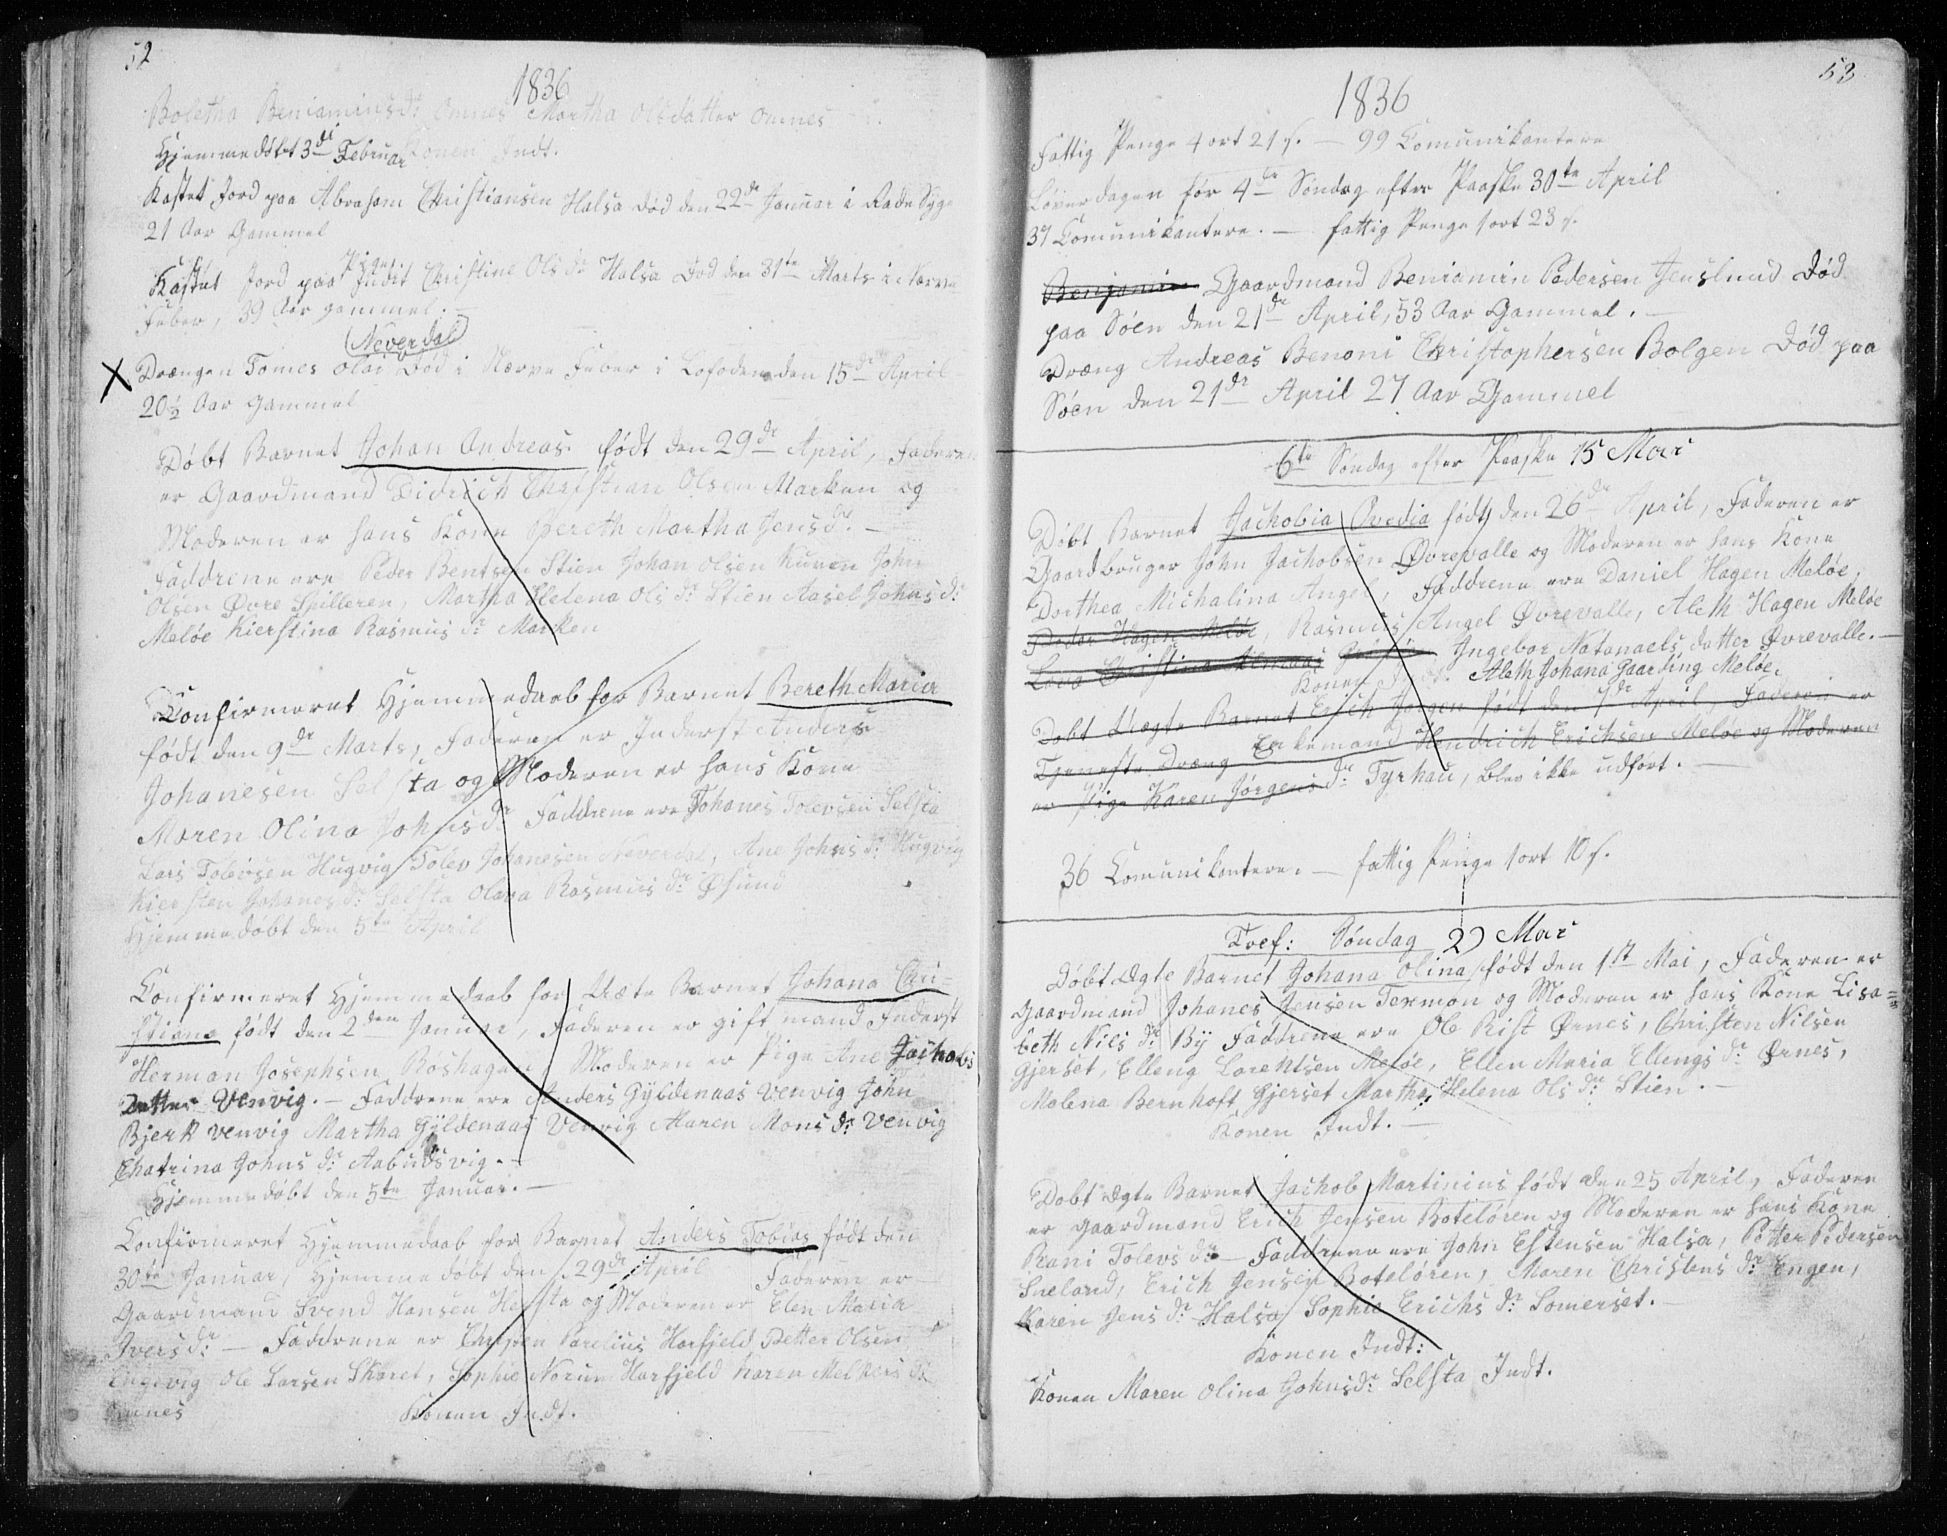 52
1836
Boletha Beniaminsdr Omnes Martha Olsdatter Omnes
Hjemmedøbt 3de Februar Konen Indt.
Kastet Jord paa Abraham Christiansen Halsa død den 22de Januar i Rade Syge
21 Aar Gammel
Kastet Jord paa Pigen Judit Christine Ols dr Halsa Død den 31te Marts i Nerve
Feber, 39 Aar gammel.
Neverdal
X Drængen Tomes Olai Død i Nerve Feber i Lofoden den 15de April
20½ Aar gammel
Døbt Barnet Johan Andreas født den 29de April, Faderen
er Gaardmand Didrich Christian Olsen Marken og
Moderen er hans Kone Bereth Martha Jensdr. —
Faddrene ere Peder Bentsen Stien Johan Olsen Kunen John
Olsen Øvre Spilleren, Martha Helena Ols dr Stien Aasel Johns dr
Meløe Kierstina Rasmus dr Marken
Confirmeret Hjemmedaab for Barnet Bereth Maria
født den 9de Marts, Faderen er Inderst Anders
Johanesen Selsta og Moderen er hans Kone
Maren Olina Johnsdr Faddrene ere Johanes Tolevsen Selsta
Lars Tolevsen Hugvig Tolev Johanesen Neverdal, Ane Johns dr Hugvig
Kiersten Johanes dr Selsta Olava Rasmus dr Øsund
Hjemmedøbt den 5te April
Confirmeret Hjemmedaab for Uæte Barnet Johana Chri=
stiana født den 2den Januar, Faderen er gift mand Inderst
Herman Josephsen Røshagen Moderen er Pige Ane Jachobs
Datter Venvig. — Faddrene ere Anders Gyldenaas Venvig John
Bjerk Venvig Martha Gyldenaas Venvig Maren Mons dr Venvig
Chatrina Johns dr Aabudsvig. —
Hjemmedøbt den 5te Januar. —
Confirmeret Hjemmedaab for Barnet Anders Tobias født den
30te Januar, Hjemmedøbt den 29de April Faderen er
Gaardmand Svend Hansen Selsta og Moderen er Elen Maria
Ivers dr — Faddrene er Christen Parelius Horfjeld Petter Olsen
Engevig Ole Larsen Skaret, Sophie Norum Horfjeld Karen Melkers dr
Omnes Konen Indt.
53
1836
Fattig Penge 4 ort 21 s. — 99 Comunikantere
Løverdagen før 4de Søndag efter Paaske 30te April
37 Comunikantere. — fattig Penge 1 ort 23 s.
Benjamin Gaardmand Beniamin Pedersen Jenslund Død
paa Søen den 21de April, 53 Aar Gammel. —
Dræng Andreas Benoni Christophersen Bolgen Død paa
Søen den 21de April 27 Aar Gammel
6te Søndag efter Paaske 15 Mai
Døbt Barnet Jachobia Ovedia født den 26de April, Faderen er
Gaardbruger John Jachobsen Øvrevalle og Moderen er hans Kone
Dorthea Michalina Angel, Faddrene ere Daniel Hagen Meløe,
Peder Hagen Meløe, Rasmus Angel Øvrevalle, Aleth Hagen Meløe
Lova Christina Ingebor Natanaels datter Øvrevalle. —
Konen Indt. Aleth Johana Gaarding Meløe.
Døbt Uægte Barnet Erich Jørgen født den 7de April, Faderen er
Tjeneste Dræng Enkemand Hendrich Erichsen Meløe og Moderen
er Pige Karen Jørgens dr Tyrhau, blev ikke udført. —
36 Comunikantere. — fattig Penge 1 ort 10 s.
Tref: Søndag 29 Mai
Døbt Ægte Barnet Johana Olina født den 1st Mai, Faderen er
Gaardmand Johanes Jensen Texmon og Moderen er hans Kone Lisa=
beth Niels dr By Faddrene ere Ole Rist Ørnes, Christen Nilsen
Gjerset, Elleng Lorentsen Meløe, Elen Maria Ellengs dr Ørnes,
Malena Bernhoft Gjerset Martha Helena Ols dr Stien. —
Konen Indt. —
Døbt Ægte Barnet Jachob Martinius født den 25 April, Faderen
er Gaardmand Erich Jensen Boteløren og Moderen er hans Kone
Rani Tolevs dr — Faddrene ere John Estensen Halsa, Petter Pedersen
Sneland, Erich Jensen Boteløren, Maren Christens dr Engen,
Karen Jens dr Halsa Sophie Erichs dr Somerset. —
Konen Indt:
Konen Maren Olina Johnsdr Selsta Indt.